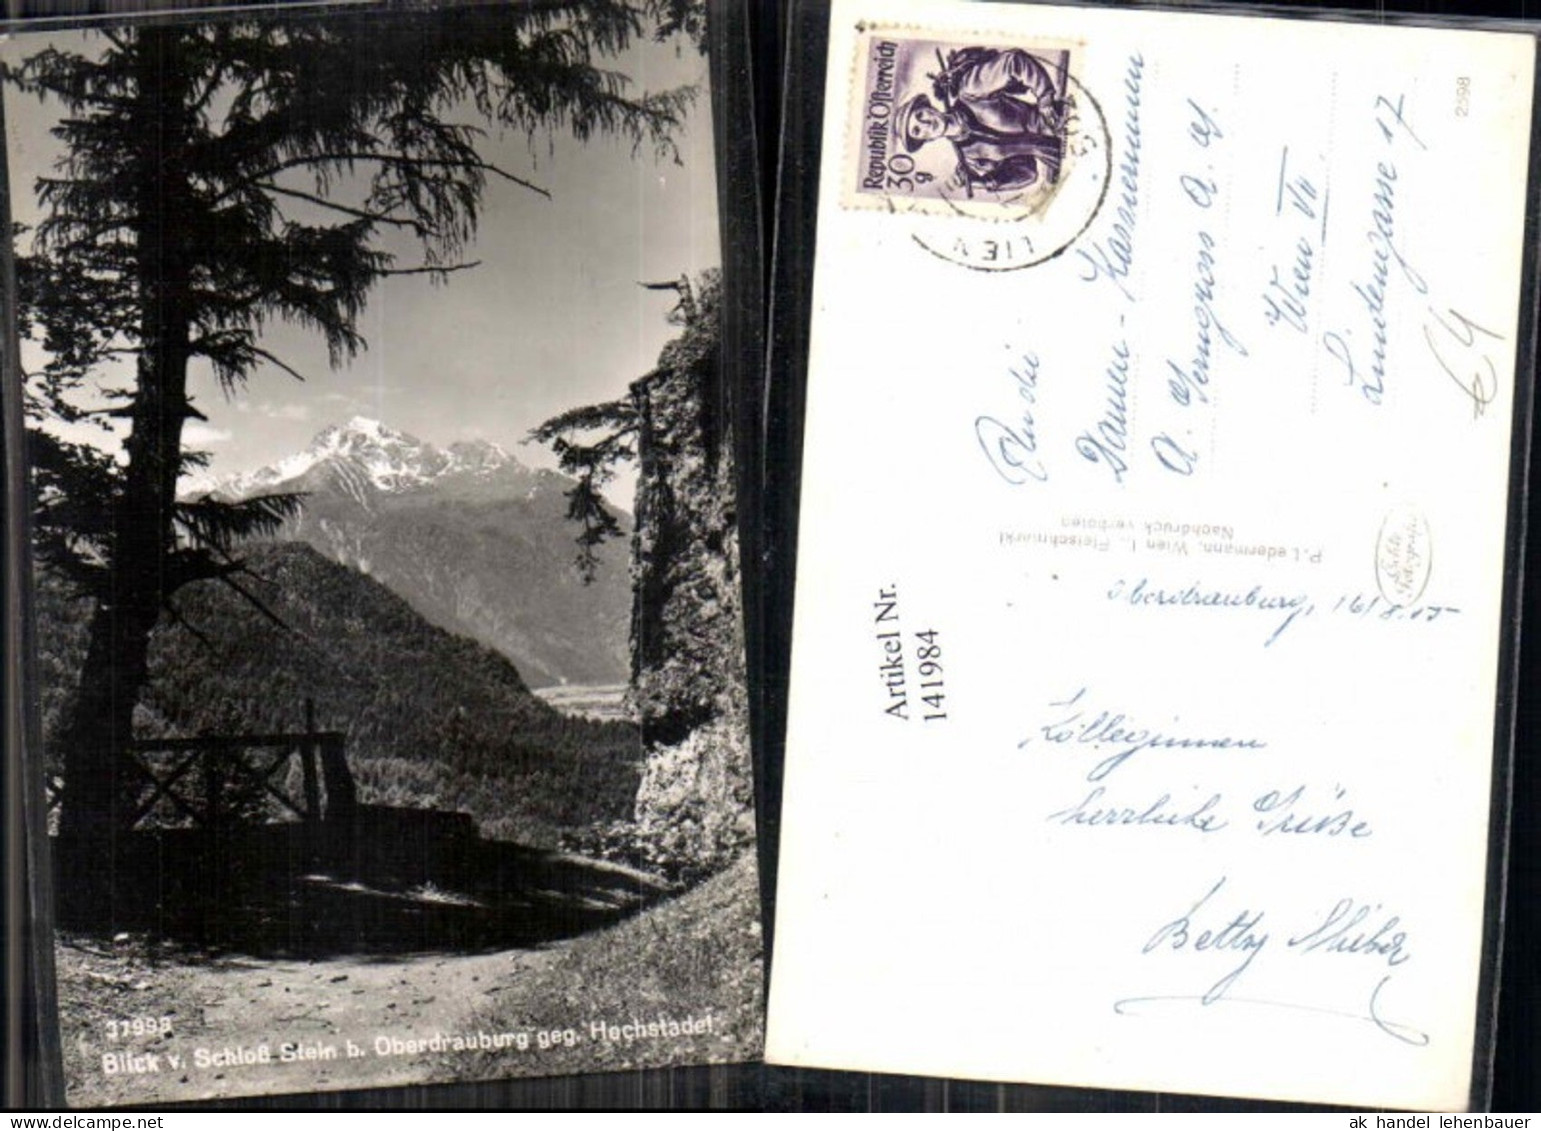 37998
Blick v. Schloß Stein b. Oberdrauburg geg. Hochstadel.
Republik Österreich
30 g
LIEN
2598
An die
Damen-
A. Gerngross A. G.
Wien VII
Lindengasse 17
€ 4
P. Ledermann, Wien I., Fleischmarkt
Nachdruck verboten
Echte
Artikel Nr.
141984
Oberdrauburg, 16/8.55
Kolleginnen
herrliche Grüße
Betty
ak handel lehenbauer